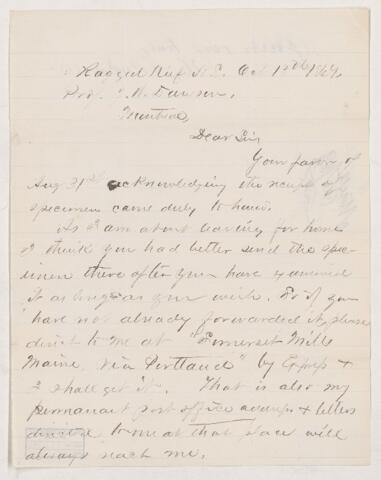 Ragged Reef N.S. Oct 12th 1869.
Prof. J. W. Dawson,
Montreal,
Dear Sir
Your favor of
Aug 31st acknowledging the receipt of
specimen came duly to hand.
As I am about leaving for home
I think you had better send the spec-
imen there after you have examined
it as long as you wish. So if you
have not already forwarded it, please
direct to me at "Somerset Mills
Maine, via Portland" by Express &
I shall get it. That is also my
permanent post office address & letters
directed to me at that place will
always reach me.